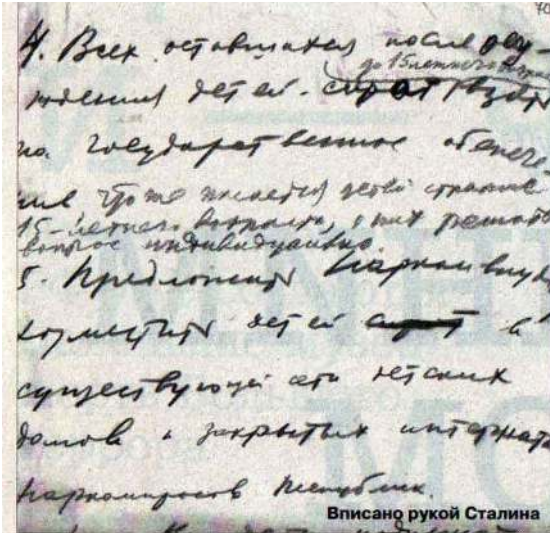 70
4. Всех оставшихся после осу-
до 15-летнего возраста
ждения детей-сирот взять
на государственное обеспече-
ние что же касается детей старше
15-летнего возраста, о них решать
вопрос индивидуально.
5. Предложить Наркомвнуделу
разместить детей сирот в
существующей сети детских
домов и закрытых интернатах
наркомпросов республик.
Вписано рукой Сталина